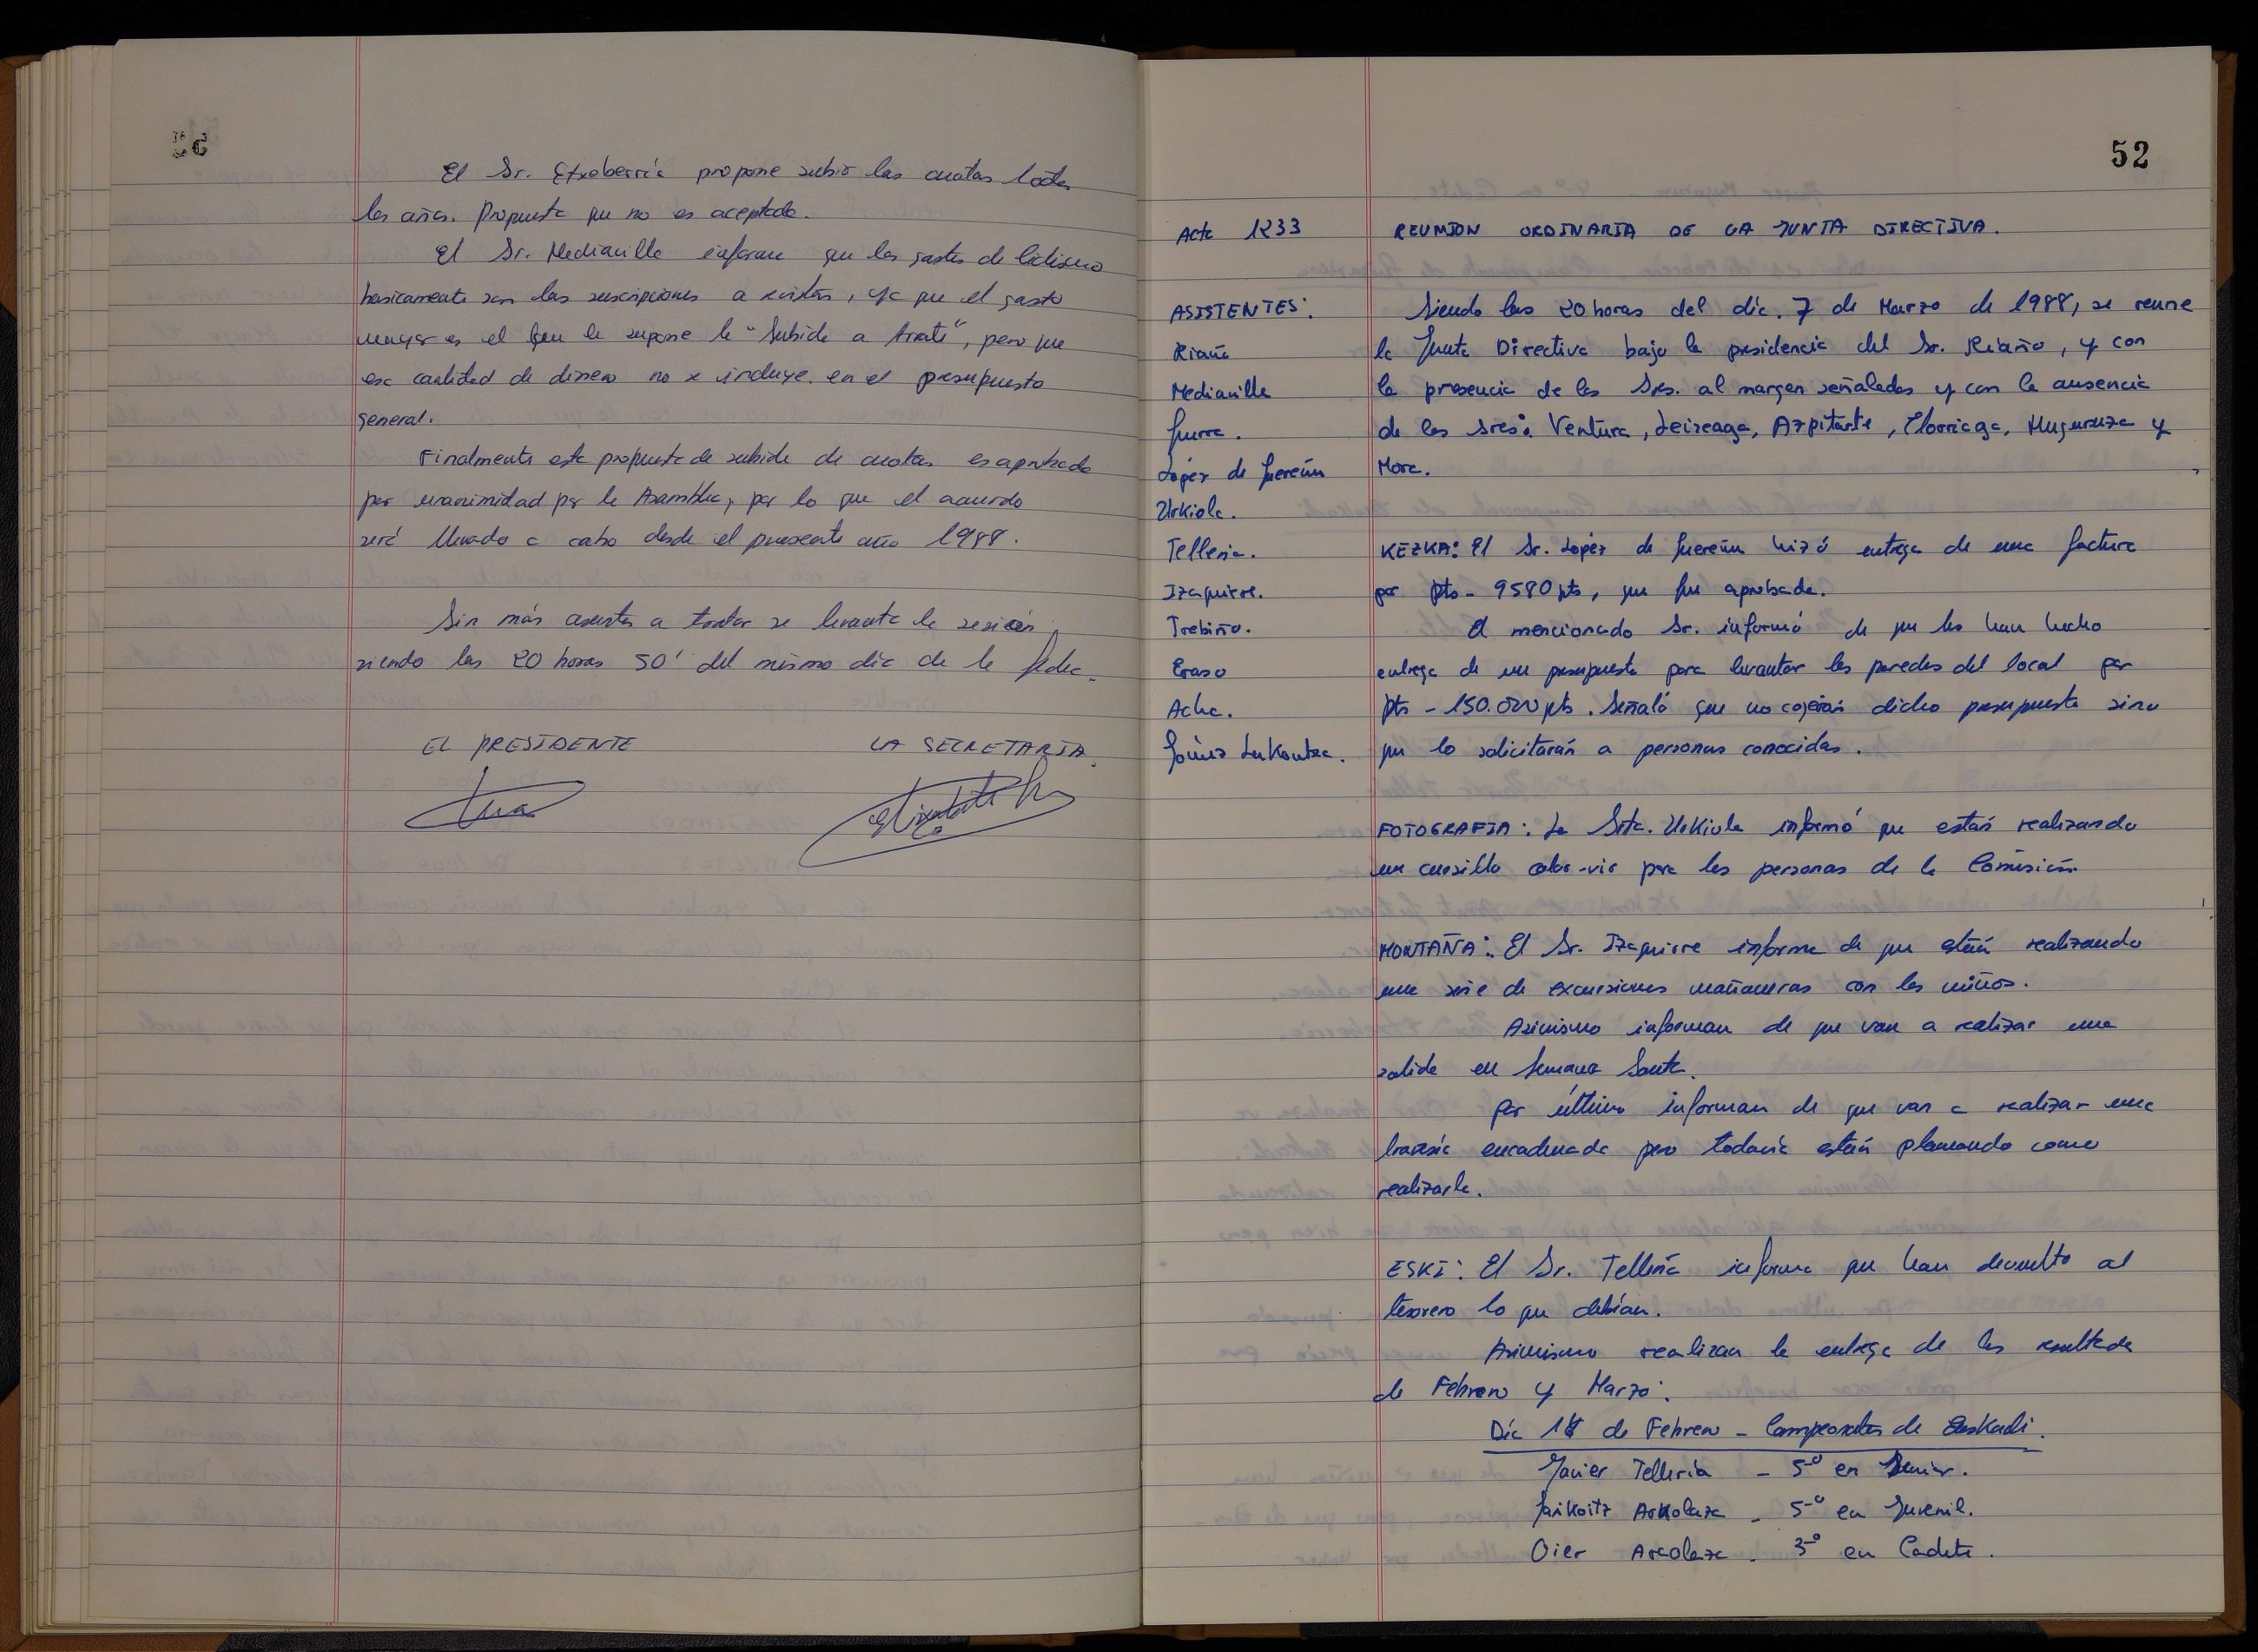 El Sr. Etxeberria propone subir las cuotas todos
los años. Propuesta que no es aceptada.
El Sr. Mediavilla informa que los gastos de
basicamente son las suscripciones a revistas, ya que el gasto
mayor es el que le supone la "Subida a Arrate", pero que
esa cantidad de dinero no se incluye en el presupuesto
general.
Finalmente esta propuesta de subida de cuotas es aprobada
por unanimidad por la Asamblea, por lo que el acuerdo
será llevado a cabo desde el presente año 1988.
Sin más asuntos a tratar se levanta la sesión
siendo las 20 horas 50' del mismo día de la fecha.
EL PRESIDENTE LA SECRETARIA
52
Acta 1233 REUNION ORDINARIA DE LA JUNTA DIRECTIVA.
ASISTENTES: Siendo las 20 horas del día 7 de Marzo de 1988, se reune
Riaño la Junta Directiva bajo la presidencia del Sr. Riaño, y con
Mediavilla la presencia de los Sres. al margen señalados y con la ausencia
Gurra. de los Sres: Ventura, Leizeaga, Azpitarte, Elorriaga, Muguruza y
López de Guereñu Mora.
Urkiola.
Telleria. KEZKA: El Sr. López de Guereñu hizó entrega de una factura
Izaguirre. por pts - 9580 pts, que fue aprobada.
Trebiño. El mencionado Sr. informó de que les han hecho
Eraso entrega de un presupuesto para levantar las paredes del local por
Acha. pts - 150.000 pts. Señaló que no cogerán dicho presupuesto sino
Gómez Lukontza. que lo solicitarán a personas conocidas.
FOTOGRAFIA: La Srta. Urkiola informó que están realizando
un cursillo color-vir para las personas de la Comisión.
MONTAÑA: El Sr. Izaguirre informa de que están realizando
una serie de excursiones mañaneras con los niños.
Asimismo informan de que van a realizar una
salida en Semana Santa.
Por último informan de que van a realizar una
travesía encadenada pero todavía están planeando como
realizarla.
ESKI: El Sr. Telleria informa que han devuelto al
tesorero lo que debían.
Asimismo realizan la entrega de los resultados
de Febrero y Marzo:
Día 14 de Febrero - Campeonatos de Euskadi.
Javier Telleria - 5º en Senior.
Jarikoitz Arkolaza - 5º en Juvenil.
Oier Arcolaza - 3º en Cadete.